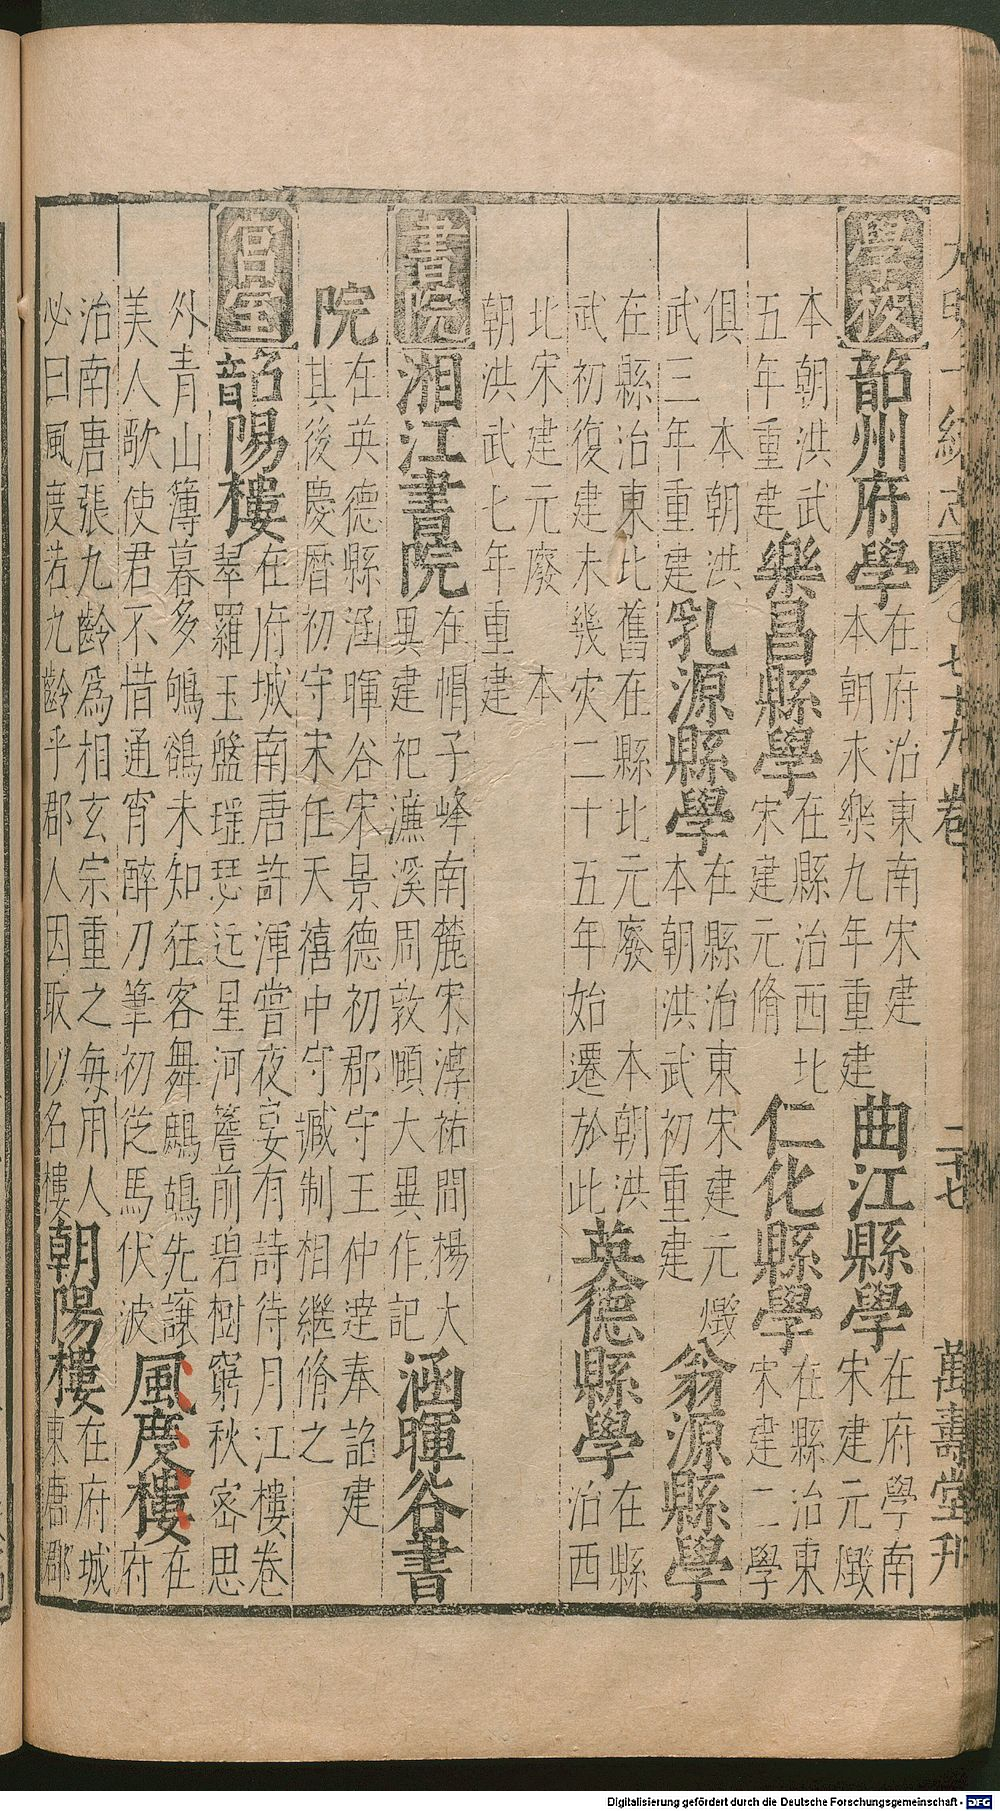 大明一統志 七十九卷 二十七 萬壽堂刊
學校 韶州府學 在府治東南宋建
本朝永樂九年重建 曲江縣學 在府學南
宋建元燬
本朝洪武
五年重建 樂昌縣學 在縣治西北
宋建元脩 仁化縣學 在縣治東
宋建二學
俱 本朝洪
武三年重建 乳源縣學 在縣治東宋建元燬
本朝洪武初重建 翁源縣學
在縣治東北舊在縣北元廢 本朝洪
武初復建未幾灾二十五年始遷於此 英德縣學 在縣
治西
北宋建元廢 本
朝洪武七年重建
書院 湘江書院 在帽子峰南麓宋淳祐間楊大
異建祀濂溪周敦頤大異作記 涵暉谷書
院 在英德縣涵暉谷宋景德初郡守王仲達奉詔建
其後慶曆初守宋任天禧中守臧制相繼脩之
宮室 韶陽樓 在府城南唐許渾嘗夜宴有詩待月江樓卷
翠羅玉盤瑶瑟近星河簷前碧樹窮秋密思
外青山簿暮多鴝鵒未知狂客舞鷓鴣先讓
美人歌使君不惜通宵醉刀筆初從馬伏波 風度樓 在
府
治南唐張九齡為相玄宗重之每用人
必曰風度若九齡乎郡人因取以名樓 朝陽樓 在府城
東唐郡
Digitalisierung gefördert durch die Deutsche Forschungsgemeinschaft - DFG